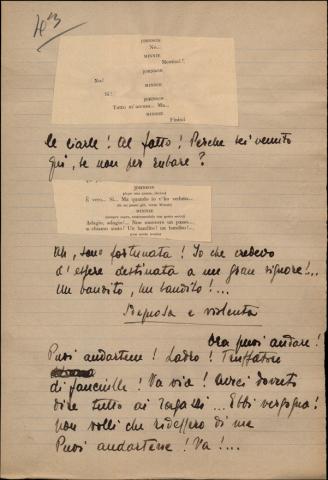 JOHNSON
No...
MINNIE
Mentisci!
JOHNSON
No!
MINNIE
Sì!
JOHNSON
Tutto m'accusa... Ma...
MINNIE
Finisci
le ciarle! Al fatto! Perchè sei venuto
qui, se non per rubare?
JOHNSON
È vero... Sì... Ma quando io v'ho veduta...
MINNIE
Adagio, adagio!... Non muovere un passo...
o chiamo aiuto! Un bandito! un bandito!...
Ah, sono fortunata! Io che credevo
d'essere destinata a un gran signore!...
Un bandito, un bandito!...
e violenta
Ora puoi andare!
Puoi andartene! Ladro! Truffatore
di fanciulle! Va via! Avrei dovuto
dire tutto ai ragazzi... Ebbi vergogna!
non volli che ridessero di me
Puoi andartene! Va!...